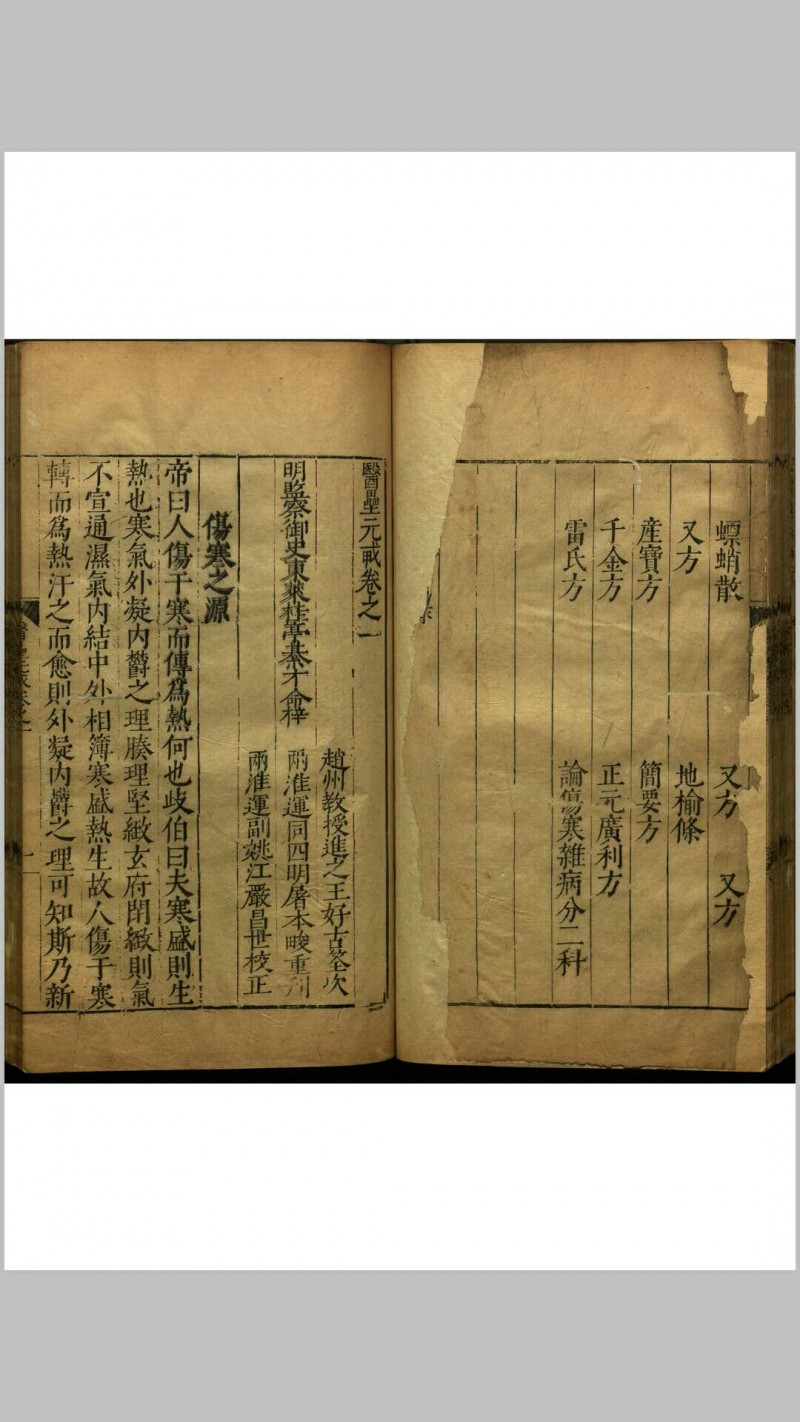 螵蛸散 又方 又方
又方 地榆條
産寶方 簡要方
千金方 正元廣利方
雷氏方 論傷寒雜病分二科
醫壘元戎卷之一
趙州教授進之王好古筌次
明監察御史東萊桂亭綦才命梓 兩淮運同四明屠本畯重刋
兩淮運副姚江嚴昌世校正
傷寒之源
帝曰人傷于寒而傳爲熱何也歧伯曰夫寒盛則生
熱也寒氣外凝內欝之理腠理堅緻玄府閉緻則氣
不宣通濕氣內結中外相簿寒盛熱生故人傷于寒
轉而爲熱汗之而愈則外凝內欝之理可知斯乃新